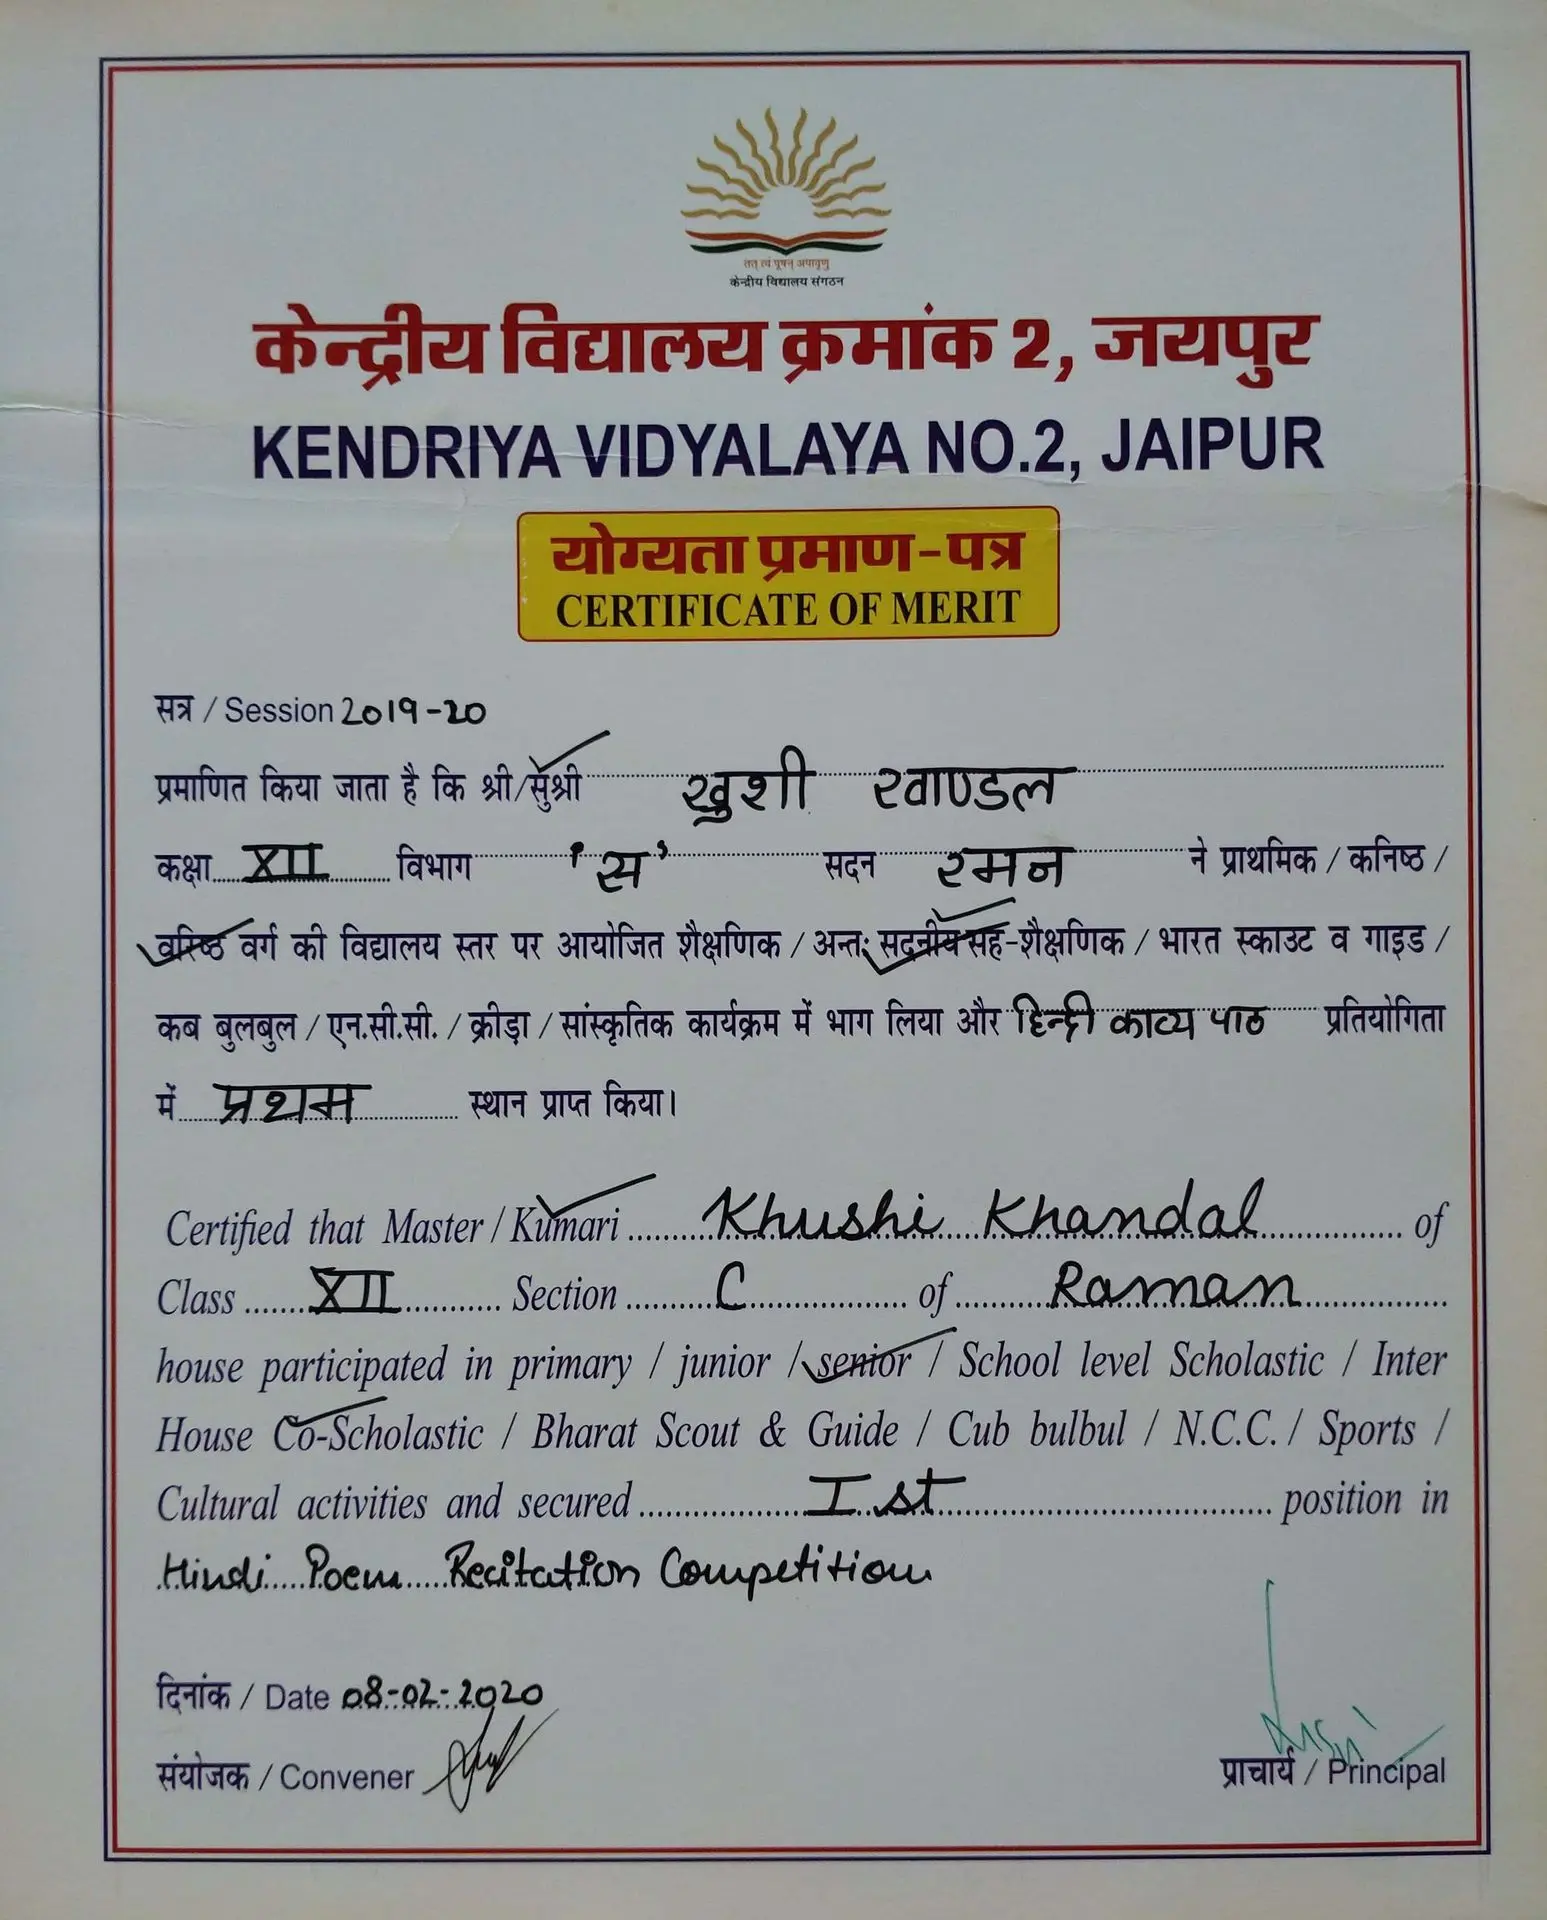 तत् त्वं पूषन् अपावृणु
केन्द्रीय विद्यालय संगठन
केन्द्रीय विद्यालय क्रमांक 2, जयपुर
KENDRIYA VIDYALAYA NO.2, JAIPUR
योग्यता प्रमाण-पत्र
CERTIFICATE OF MERIT
सत्र / Session 2019-20
प्रमाणित किया जाता है कि श्री/सुश्री खुशी खाण्डल
कक्षा XII विभाग 'स' सदन रमन ने प्राथमिक / कनिष्ठ /
वरिष्ठ वर्ग की विद्यालय स्तर पर आयोजित शैक्षणिक / अन्तः सदनीय सह-शैक्षणिक / भारत स्काउट व गाइड /
कब बुलबुल / एन.सी.सी. / क्रीड़ा / सांस्कृतिक कार्यक्रम में भाग लिया और हिन्दी काव्य पाठ प्रतियोगिता
में प्रथम स्थान प्राप्त किया।
Certified that Master / Kumari Khushi Khandal of
Class XII Section C of Raman
house participated in primary / junior / senior / School level Scholastic / Inter
House Co-Scholastic / Bharat Scout & Guide / Cub bulbul / N.C.C. / Sports /
Cultural activities and secured Ist position in
Hindi Poem Recitation Competition
दिनांक / Date 08-02-2020
संयोजक / Convener
प्राचार्य / Principal